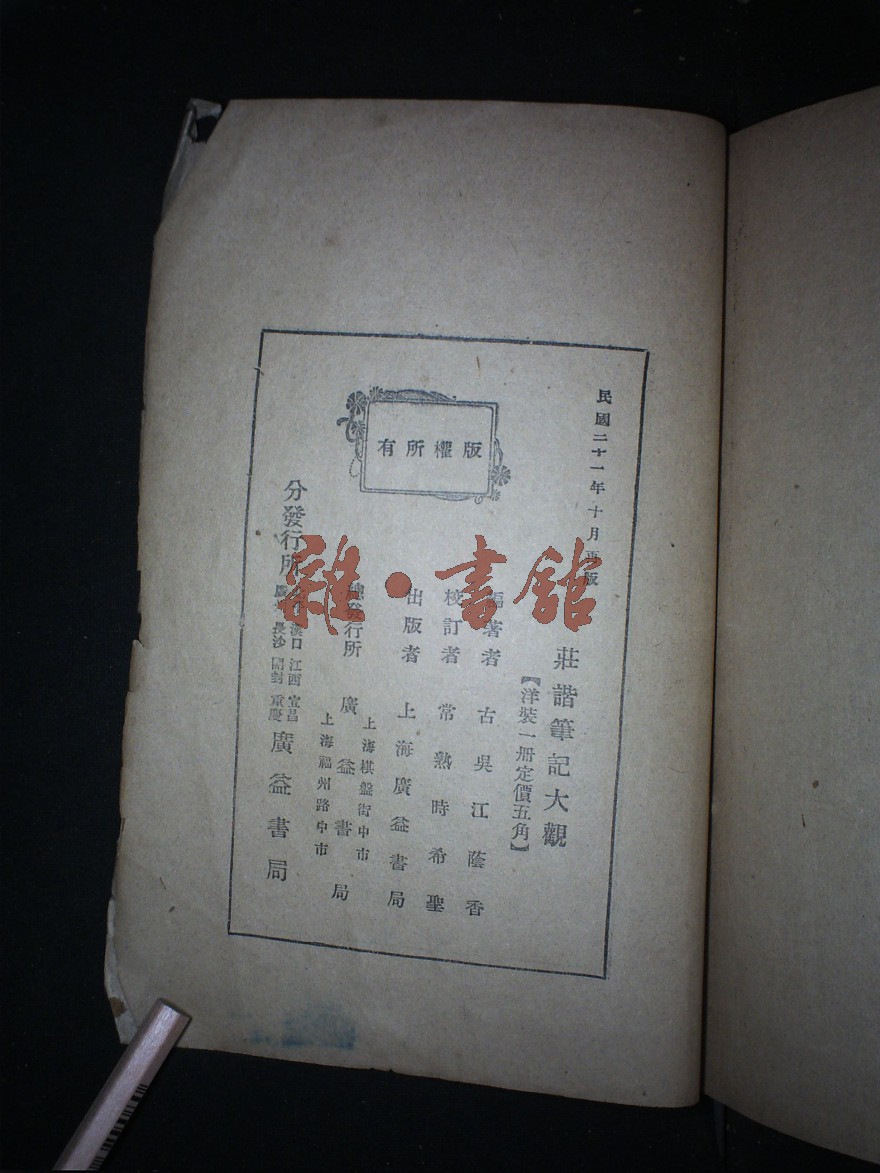 民國二十一年十月再版
莊諧筆記大觀
【洋裝一册定價五角】
編著者 古吳江蔭香
校訂者 常熟時希聖
出版者 上海廣益書局
總發行所 廣益書局
上海棋盤街中市
上海福州路中市
分發行所
漢口 江西 宜昌
長沙 開封 重慶
廣益書局
版權所有
雜·書館